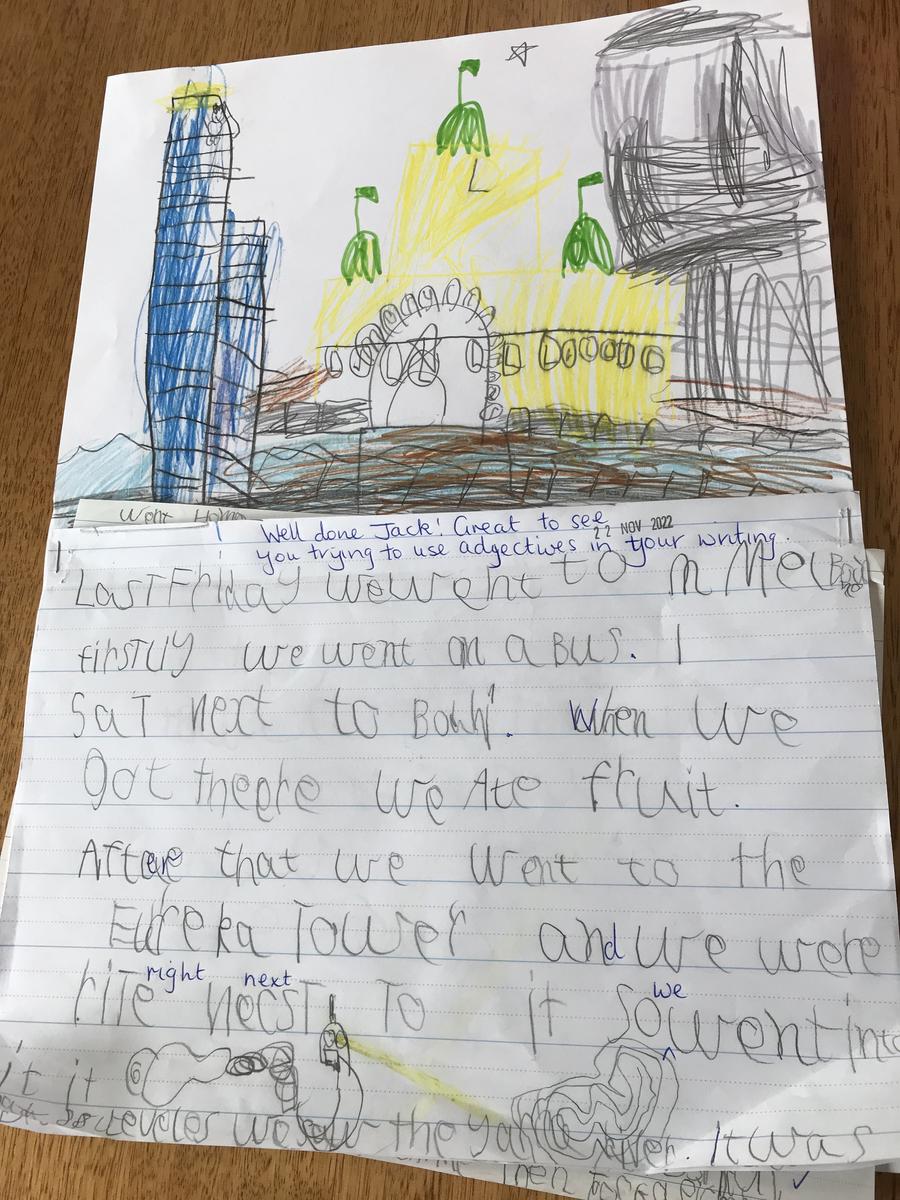 L
Went Home
Well done Jack! Great to see
22 NOV 2022
you trying to use adgectives in your writing.
Last Friday wewent to
firstly we went on a Bus. I
Sat next to . When we
Got theere we Ate fruit.
After that we went to the
Eureka Tower and we were
right next
rite necst to it So we went into
it it
Leveles we the river. It was